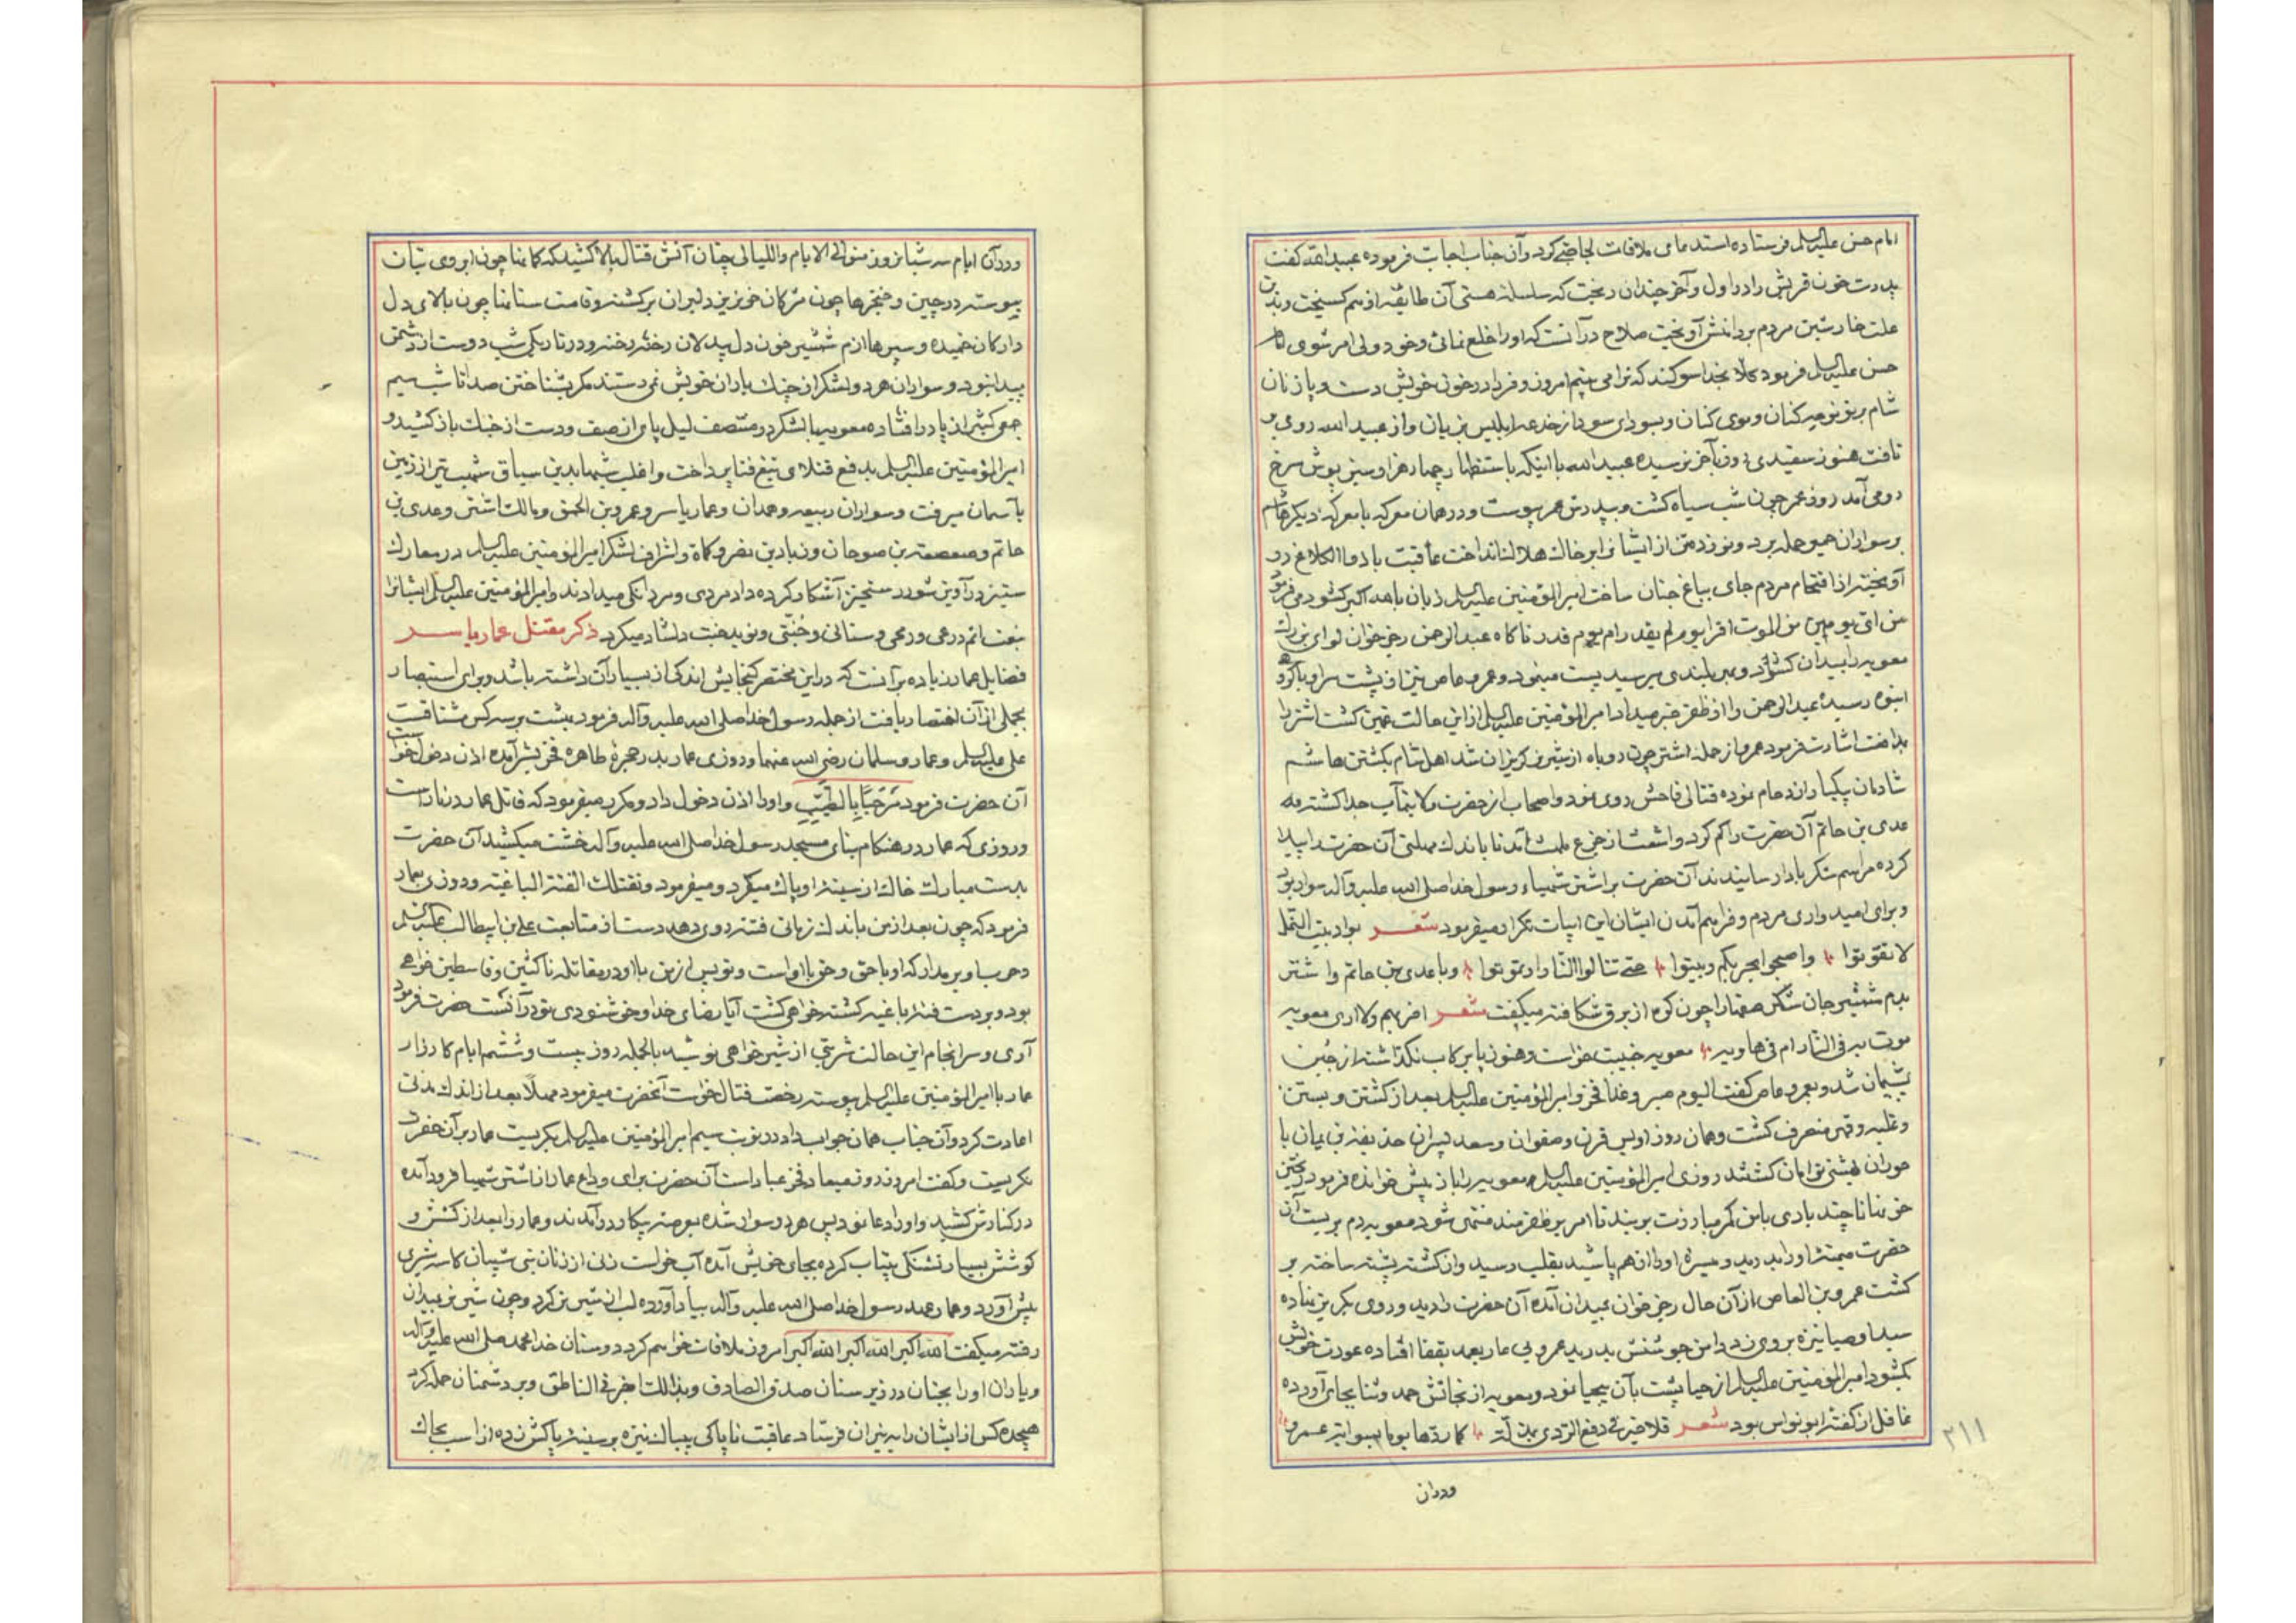 امام حسن علیه‌السلم فرستاده استدعای ملاقات کرد و آن جناب اجابت فرموده عبیدالله گفت
پدرت خون قریش را در اول و آخر چندان ریخت که سلسلهٔ هستی آن طایفه از هم گسیخت
مردم بر دامنش آویخت صلاح در آنست که او را خلع نمائی و خود ولی امر شوی امام
حسن علیه‌السلم فرمود کلا بخدا سوگند که ترا می بینم امروز و فردا در خون خویش دست و پا زنان
شام بر تو نوحه کنان و موی کنان و از عبیدالله روی بر
تافت هنوز سفیدی روز بآخر نرسیده عبیدالله با اینکه باستظهار چهار هزار سبز پوش سرخ
روی آمد روز عمر چون شب سیاه گشت و بپدرش عمر پیوست و در همان معرکه هاشم
بر سواران حمله برد و نوزده تن از ایشانرا بر خاک هلاک انداخت عاقبت با ذوالکلاع در
آویخته جای بباغ جنان ساخت امیرالمؤمنین علیه‌السلم زبان بالله اکبر کشود می فرمود
من ای یومین من الموت افر ایوم لم یقدر ام یوم قدر ناگاه عبدالرحمن رجز خوان
معویه را بمیدان و عمرو عاص نیز از پشت سر او با گروه
انبوه رسیده عبدالرحمن را از ظفر خبر میداد امیرالمؤمنین علیه‌السلم از این حالت غمین گشت اشتر را
بمدافعت اشارت فرمود عمرو از حمله اشتر چون روباه از شیر نر گریزان شد اهل شام بکشتن هاشم
شادمان نموده قتالی فاحش روی نمود و اصحاب از حضرت ولایتمآب جدا گشته
عدی بن حاتم آن حضرت را گم کرد آن حضرت را پیدا
کرده مراسم شکر بادا رسانیدند آن حضرت بر اشتر شهباء رسول خدا صلی الله علیه و آله سوار بود
و برای امیدواری مردم و فراهم آمدن ایشان این ابیات تکرار میفرمود شعر دبوا دبیب النمل
لا تفوتوا و اصبحوا بحربکم و بیتوا حتی تنالوا الثار او تموتوا و با عدی بن حاتم و اشتر
بدم شمشیر جان شکر صفها را چون کوه از برق شکافته میگفت شعر اضربهم ولا اری معویه
هوت به فی النار ام هاویه معویه خبیث خواست و هنوز پا بر رکاب نگذاشته از جبن
پشیمان شد و بعمرو عاص گفت الیوم صبر و غدا فخر و امیرالمؤمنین علیه‌السلم بعد از کشتن و بستن
و غلبه منصرف گشت و همان روز اویس قرن و صفوان و سعد پسران حذیفه بن یمان با
حوران بهشتی توامان گشتند روزی امیرالمؤمنین علیه‌السلم معویه را باز پیش خوانده فرمود
خونها تا چند باری باین کمر مبارزت بر بند تا امر بر ظفرمند منتهی شود معویه دم بر بست آن
حضرت میمنه او را بدرید و میسره او را از هم پاشید بقلب رسید و از کشته پشته ساخته بر
گشت عمرو بن العاص از آن حال رجز خوان بمیدان آمده آن حضرت را دید و روی بگریز نهاده
سید اوصیا نیزه بروی زد دامن جوشنش بدرید عمرو بی عار بعمد بقفا افتاده عورت خویش
بگشود امیرالمؤمنین علیه‌السلم از حیا پشت بآن بیحیا نمود و معویه از نجاتش حمد و ثنا بجای آورده
غافل از گفته ابو نواس بود شعر فلا خیر فی دفع الردی بمذلة کما ردها یوما بسواته عمرو
۲۱۱
ودران
و در آن ایام سه شبانروز متوالی الایام و اللیالی چنان آتش قتال بالا کشید که کمانها چون ابروی بتان
پیوسته در چین و خنجرها چون مژگان خونریز دلبران برگشته و قامت سنانها چون بالای دل
دارگان خمیده و سپرها از دم شمشیر چون دل بیدلان رخنه رخنه و در تاریکی شب دوست از دشمن
پیدا نبود و سواران هر دو لشکر از چنگ یاران خویش نمی رستند مگر بشناختن صدا تا شب سیم
جمعی کثیر از پا در افتاده معویه با لشکر در منتصف لیل پای از صف و دست از جنگ باز کشید و
امیرالمؤمنین علیه‌السلم بدفع قتلای تیغ فنا پرداخت و اغلب شبها بدین سیاق شهب تیر از زمین
بآسمان میرفت و سواران ربیعه و همدان و عمار یاسر و عمرو بن الحمق و مالک اشتر و عدی بن
حاتم و صعصعة بن صوحان و زیاد بن نضر و کماة و اشراف لشکر امیرالمؤمنین علیه‌السلم در معارک
ستیز و آویز شور رستخیز آشکار کرده داد مردی و مردانگی میدادند و امیرالمؤمنین علیه‌السلم ایشانرا
بنعت انتم درعی و رمحی و سنانی و جنتی و نوید جنت دلشاد میکرد ذکر مقتل عمار یاسر
فضایل عمار زیاده بر آنست که در این مختصر گنجایش اندکی از بسیار آن داشته باشد و برای استبصار
بجملی از آن اختصار یافت از جمله رسول خدا صلی الله علیه و آله فرمود بهشت بر سه کس مشتاقست
علی علیه‌السلم و عمار و سلمان رضی الله عنهما و روزی عمار بدر حجرهٔ طاهره فخر بشر آمده اذن دخول خواست
آن حضرت فرمود مرحبا بالطیب و او را اذن دخول داد و مکرر میفرمود که قاتل عمار در نار است
و روزی که عمار در هنگام بنای مسجد رسول خدا صلی الله علیه و آله خشت میکشید آن حضرت
بدست مبارک خاک از سینه او پاک میکرد و میفرمود و تقتلک الفئة الباغیة و روزی بعمار
فرمود که چون بعد از من باندک زمانی فتنه روی دهد دست از متابعت علی بن ابیطالب علیه‌السلم
بر مدار که او با حق و حق با اوست و تو پس از من با او در مقاتله ناکثین و قاسطین خواهی
بود و بر دست فئه باغیه کشته خواهی گشت آیا رضای خدا و خوشنودی تو در آنست حضرت فرمود
آری و سرانجام این حالت شربتی از شیر خواهی نوشید بالجمله روز بیست و ششم ایام کارزار
عمار با امیرالمؤمنین علیه‌السلم پیوسته رخصت قتال خواست آنحضرت میفرمود مهلا بعد از اندک مدتی
اعادت کرد و آن جناب همان جواب داد در نوبت سیم امیرالمؤمنین علیه‌السلم بگریست عمار بر آن حضرت
نگریست و گفت امروز روز میعاد فخر عباد است آن حضرت برای وداع عمار از اشتر شهبا فرود آمده
در کنارش کشید و او را دعا نمود پس هر دو سوار شده بعرصه پیکار در آمدند و عمار را بعد از کشش و
کوشش بسیار تشنگی بیتاب کرده بجای خویش آمده آب خواست زنی از زنان بنی شیبان کاسه شیری
پیش آورد و عمار عهد رسول خدا صلی الله علیه و آله بیاد آورده لب از شیر تر کرد و چون شیر نر بمیدان
رفته میگفت الله اکبر الله اکبر الله اکبر امروز ملاقات خواهم کرد دوستان خدا محمد صلی الله علیه و آله
و یاران او را بجنان در زیر سنان صدق الصادق و بذالک اخبر فی الناطق و بر دشمنان حمله کرد
هیجده کس از ایشان را بنیران فرستاد عاقبت ناپاکی بیباک نیزه بر سینه پاکش زده از اسب بخاک